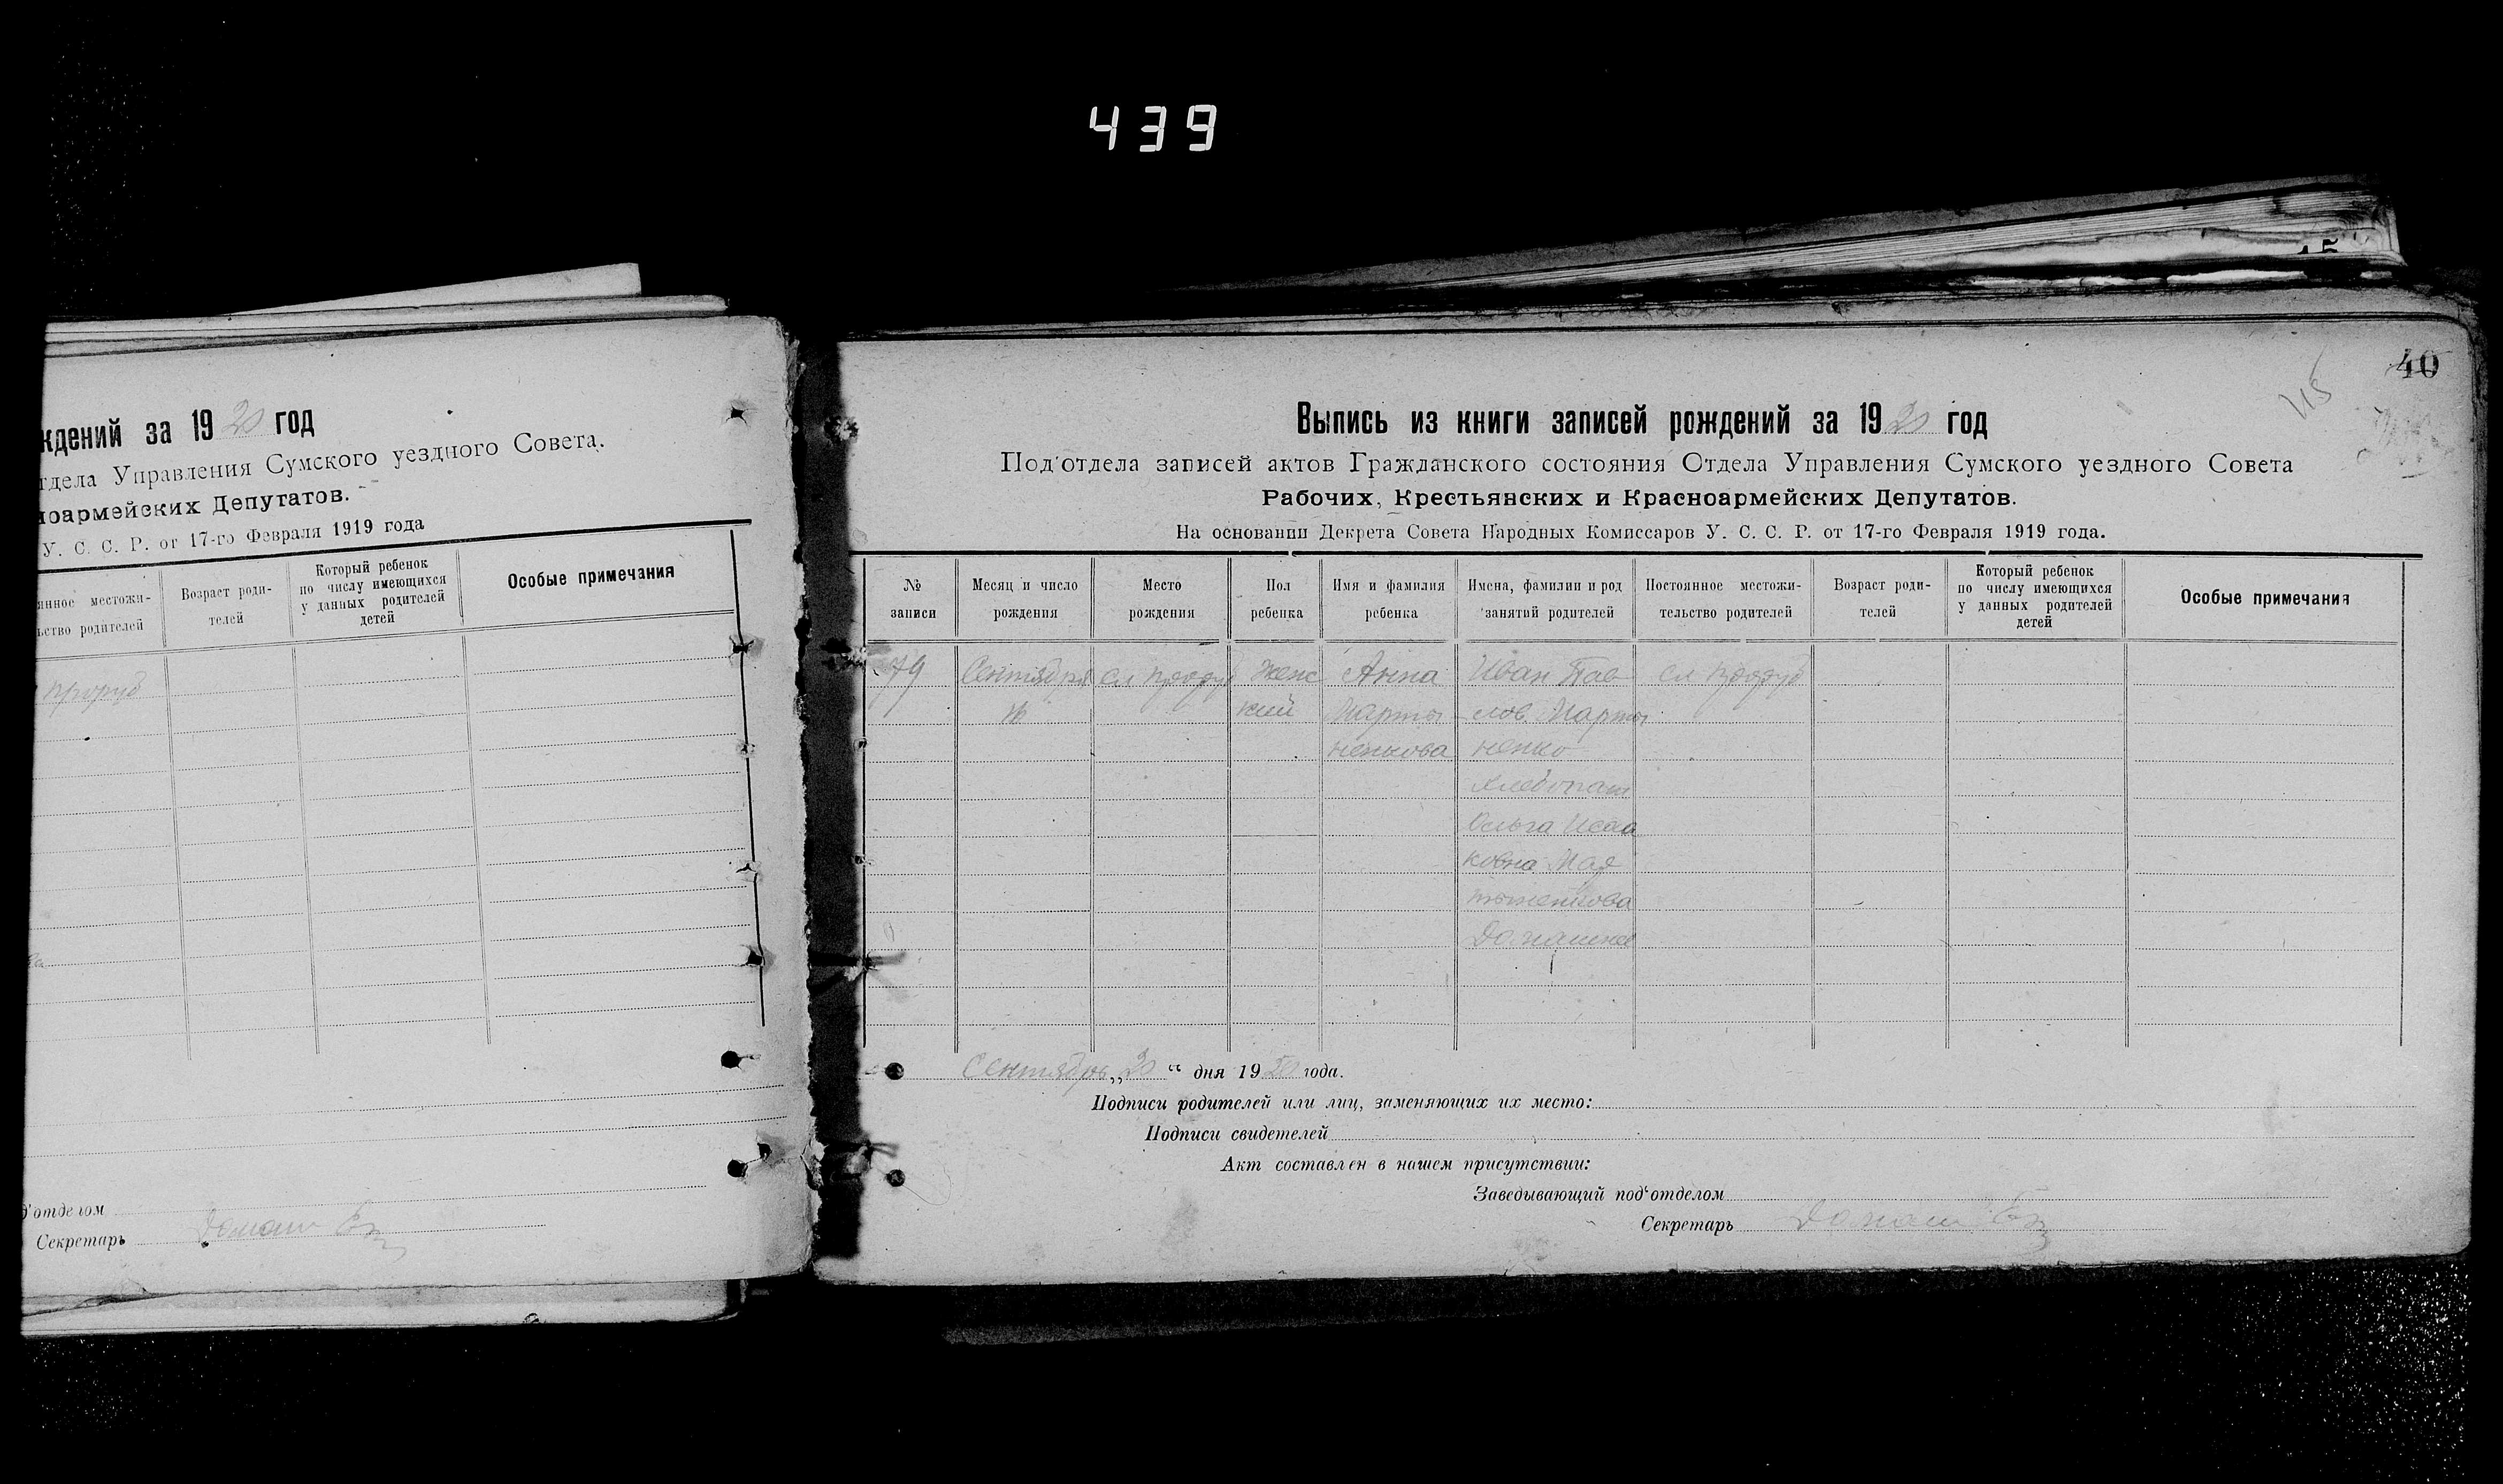 439
ждений за 1920 год
тдела Управления Сумского уездного Совета.
ноармейских Депутатов.
У. С. С. Р. от 17-го Февраля 1919 года
янное местожи-
льство родителей
Возраст роди-
телей
Который ребенок
по числу имеющихся
у данных родителей
детей
Особые примечания
д'отделом
Секретарь
40
Выпись из книги записей рождений за 1920 год
Под'отдела записей актов Гражданского состояния Отдела Управления Сумского уездного Совета
Рабочих, Крестьянских и Красноармейских Депутатов.
На основании Декрета Совета Народных Комиссаров У. С. С. Р. от 17-го Февраля 1919 года.
№
записи
Месяц и число
рождения
Место
рождения
Пол
ребенка
Имя и фамилия
ребенка
Имена, фамилии и род
занятий родителей
Постоянное местожи-
тельство родителей
Возраст роди-
телей
Который ребенок
по числу имеющихся
у данных родителей
детей
Особые примечания
79
Сентября
сл
Женс
кий
Анна
Марты
ненкова
Иван Пав
лов Марты
ненко
хлебопаш
Ольга Исаа
ковна Мар
тыненкова
Домашнее
сл
Сентябрь „20“ дня 1920 года.
Подписи родителей или лиц, заменяющих их место:
Подписи свидетелей
Акт составлен в нашем присутствии:
Заведывающий под'отделом
Секретарь